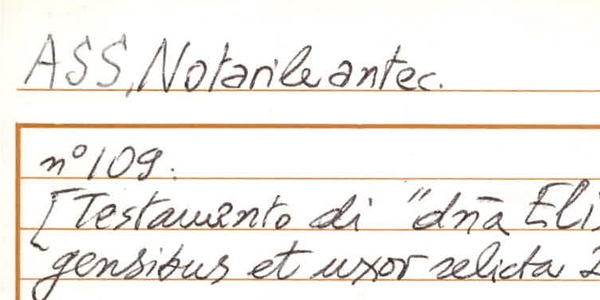 ASS, Notarile antec.
n° 109.
[Testamento di "dn̄a Eli
gensibus et uxor relicta